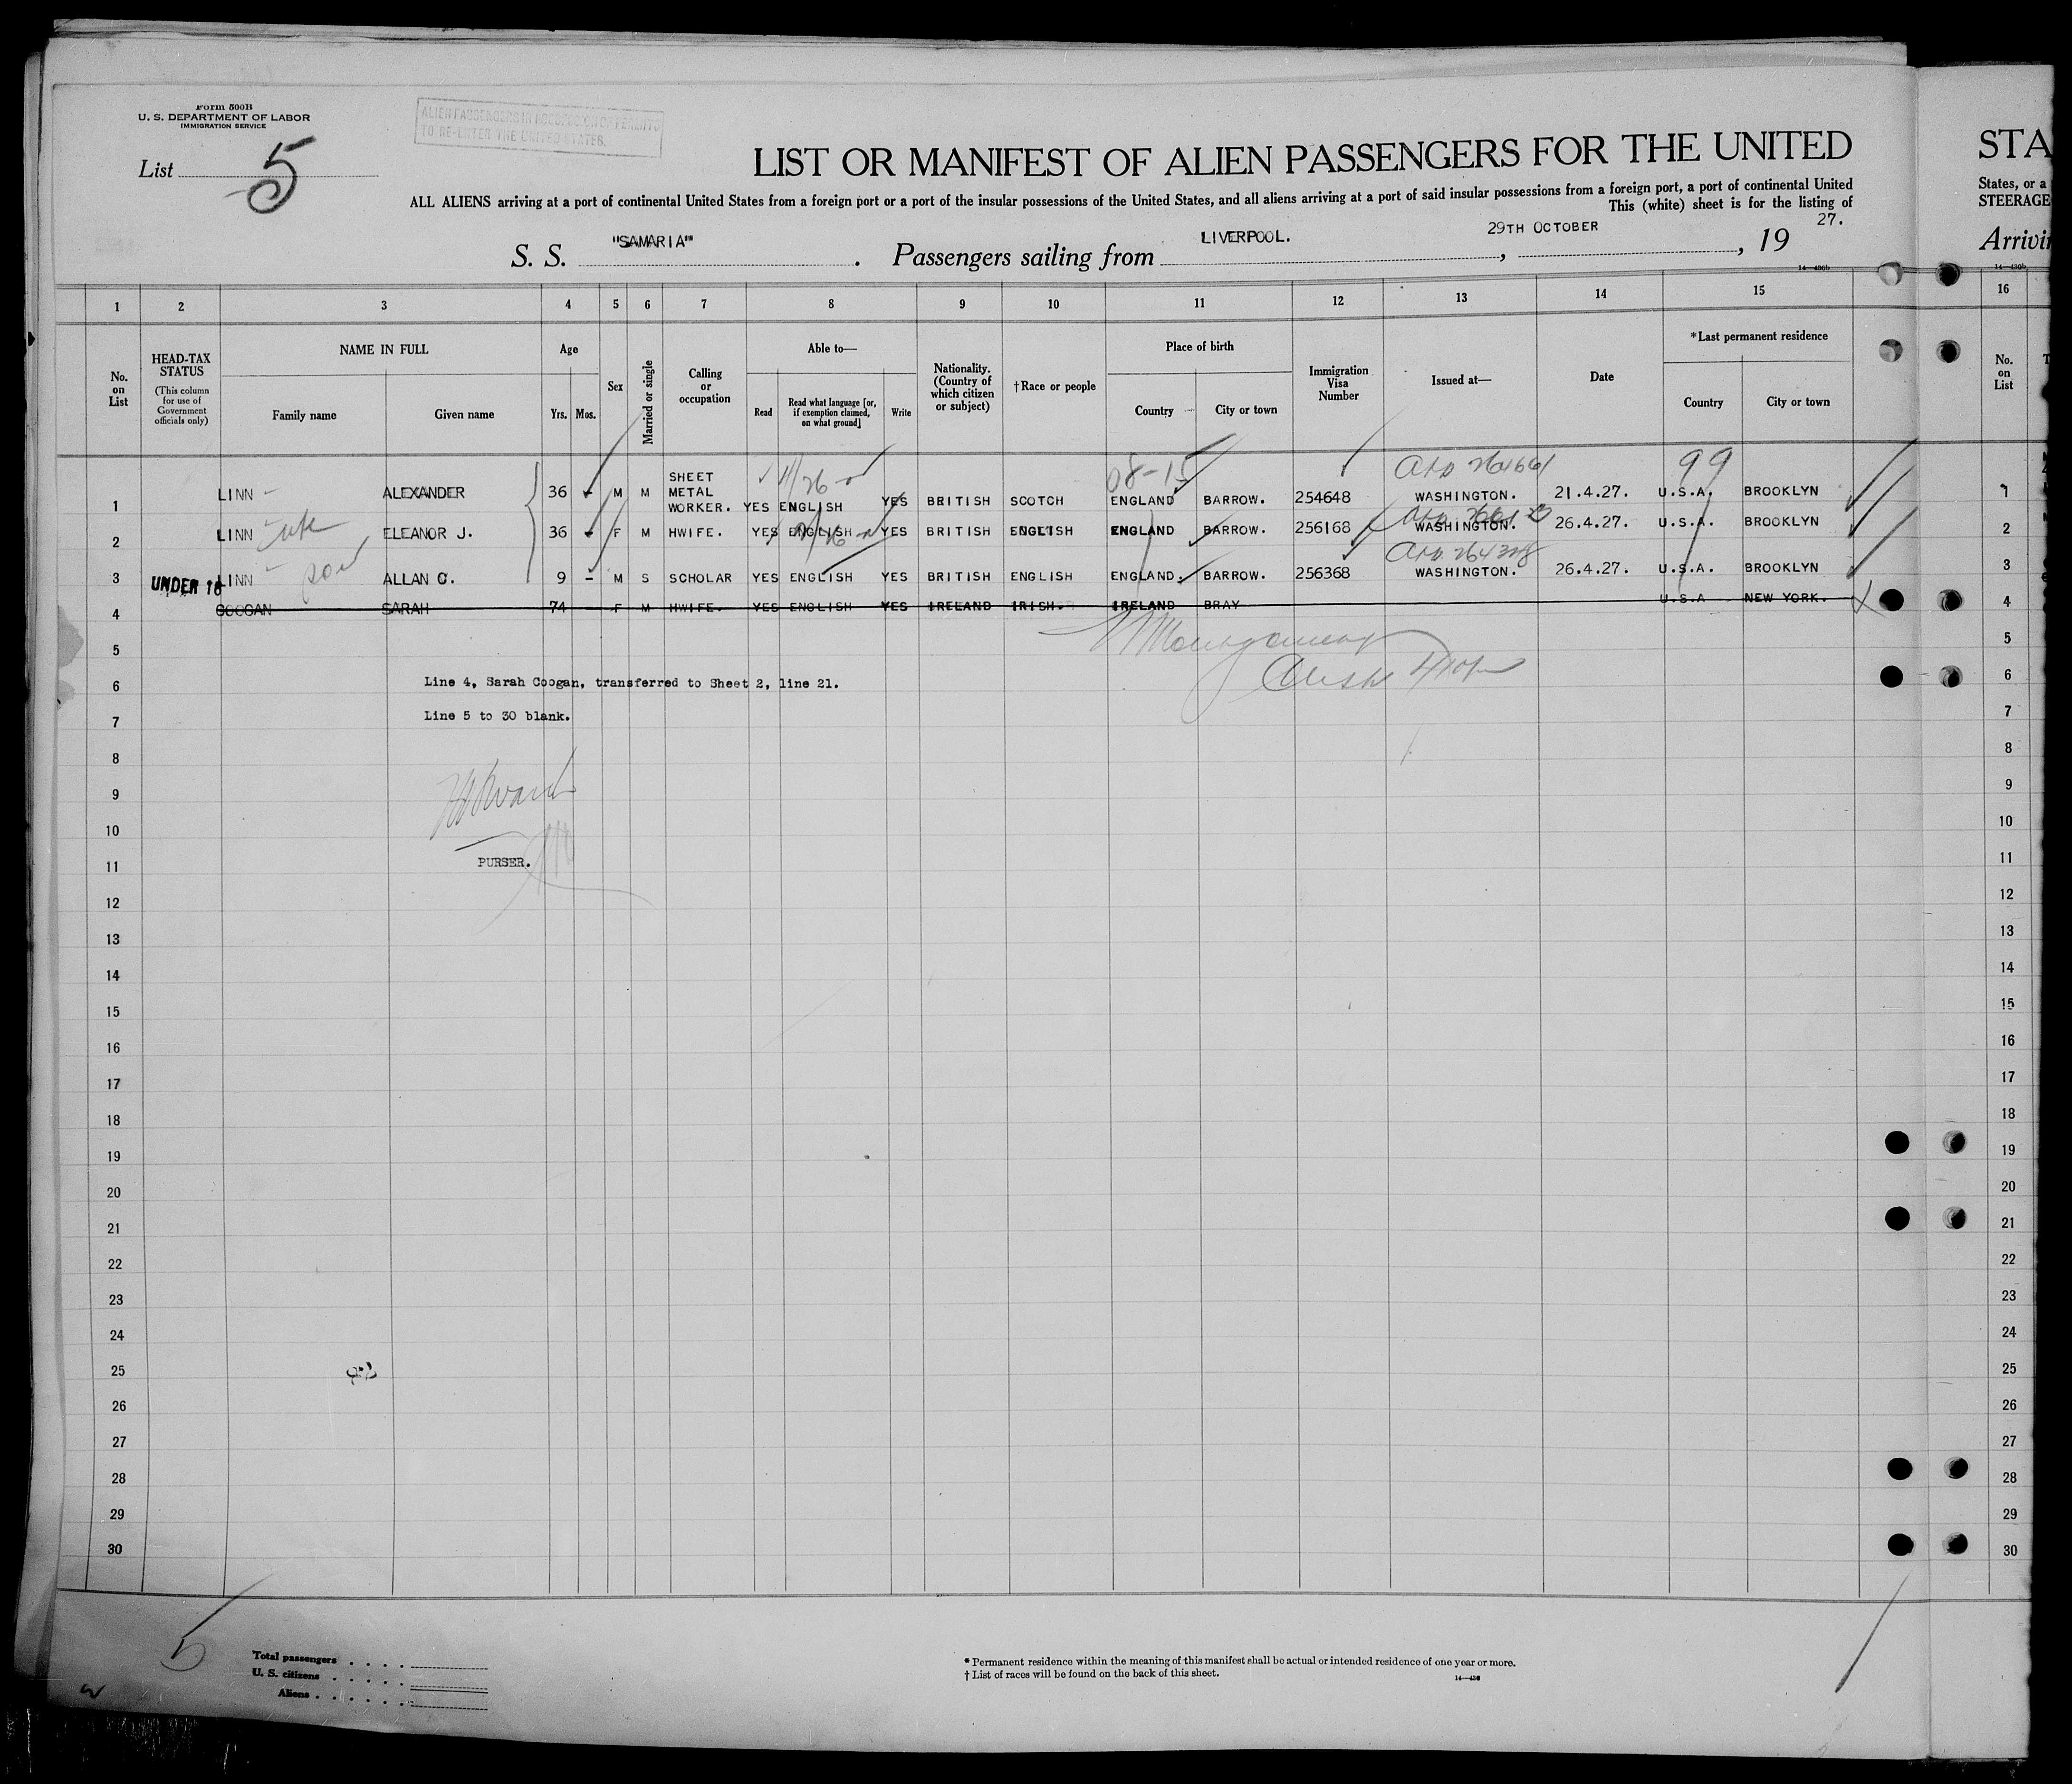 Form 500B
U. S. DEPARTMENT OF LABOR
IMMIGRATION SERVICE
ALIEN PASSENGERS IN POSSESSION OF PERMITS
TO RE-ENTER THE UNITED STATES.
List 5
LIST OR MANIFEST OF ALIEN PASSENGERS FOR THE UNITED
STA
ALL ALIENS arriving at a port of continental United States from a foreign port or a port of the insular possessions of the United States, and all aliens arriving at a port of said insular possessions from a foreign port, a port of continental United
States, or a
This (white) sheet is for the listing of
STEERAGE
S. S. "SAMARIA". Passengers sailing from LIVERPOOL., 29TH OCTOBER, 19 27.
Arrivi
14—430b
14—430b
1 2 3 4 5 6 7 8 9 10 11 12 13 14 15 16
No. on List
HEAD-TAX STATUS
(This column for use of Government officials only)
NAME IN FULL
Family name
Given name
Age
Yrs.
Mos.
Sex
Married or single
Calling or occupation
Able to—
Read
Read what language [or, if exemption claimed, on what ground]
Write
Nationality. (Country of which citizen or subject)
†Race or people
Place of birth
Country
City or town
Immigration Visa Number
Issued at—
Date
*Last permanent residence
Country
City or town
No. on List
4/26
08-15
264661
99
1 LINN ALEXANDER 36 - M M SHEET METAL WORKER. YES ENGLISH YES BRITISH SCOTCH ENGLAND BARROW. 254648 WASHINGTON. 21.4.27. U.S.A. BROOKLYN 1
2 LINN wife ELEANOR J. 36 - F M HWIFE. YES ENGLISH YES BRITISH ENGLISH ENGLAND BARROW. 256168 WASHINGTON. 26.4.27. U.S.A. BROOKLYN 2
3 UNDER 16 LINN son ALLAN C. 9 - M S SCHOLAR YES ENGLISH YES BRITISH ENGLISH ENGLAND. BARROW. 256368 WASHINGTON. 26.4.27. U.S.A. BROOKLYN 3
4 COOGAN SARAH 74 F M HWIFE. YES ENGLISH YES IRELAND IRISH. IRELAND BRAY U.S.A NEW YORK. 4
5 5
6 Line 4, Sarah Coogan, transferred to Sheet 2, line 21. 6
7 Line 5 to 30 blank. 7
8 8
9 9
10 10
11 PURSER. 11
12 12
13 13
14 14
15 15
16 16
17 17
18 18
19 19
20 20
21 21
22 22
23 23
24 24
25 25
26 26
27 27
28 28
29 29
30 30
5
Total passengers
U. S. citizens
Aliens
* Permanent residence within the meaning of this manifest shall be actual or intended residence of one year or more.
† List of races will be found on the back of this sheet.
14—430